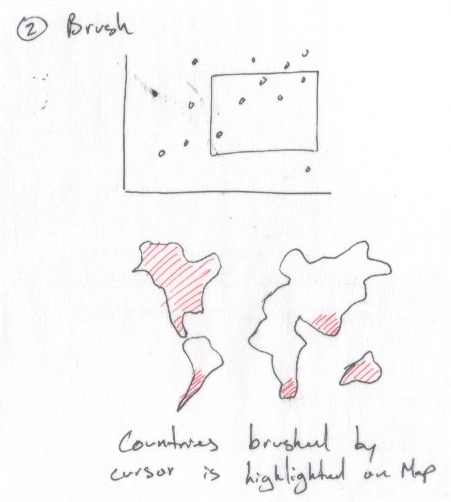 ② Brush
Countries brushed by
cursor is highlighted on Map